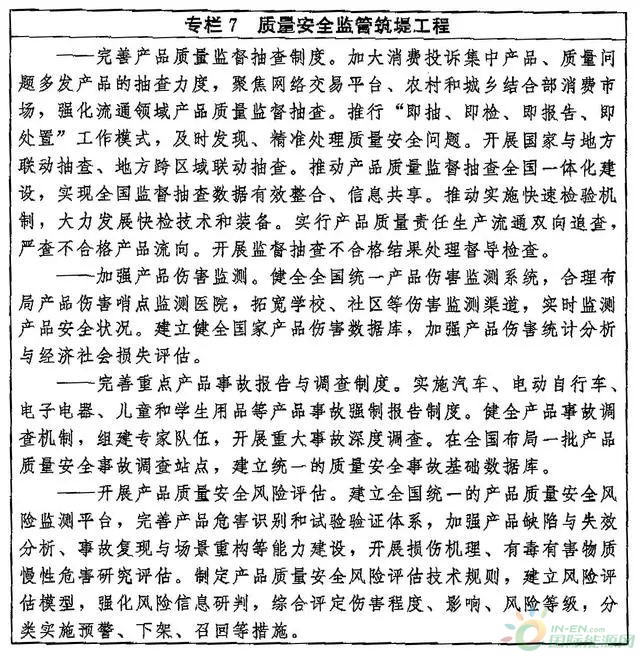 专栏7 质量安全监管筑堤工程
——完善产品质量监督抽查制度。加大消费投诉集中产品、质量问
题多发产品的抽查力度，聚焦网络交易平台、农村和城乡结合部消费市
场，强化流通领域产品质量监督抽查。推行“即抽、即检、即报告、即
处置”工作模式，及时发现、精准处理质量安全问题。开展国家与地方
联动抽查、地方跨区域联动抽查。推动产品质量监督抽查全国一体化建
设，实现全国监督抽查数据有效整合、信息共享。推动实施快速检验机
制，大力发展快检技术和装备。实行产品质量责任生产流通双向追查，
严查不合格产品流向。开展监督抽查不合格结果处理督导检查。
——加强产品伤害监测。健全全国统一产品伤害监测系统，合理布
局产品伤害哨点监测医院，拓宽学校、社区等伤害监测渠道，实时监测
产品安全状况。建立健全国家产品伤害数据库，加强产品伤害统计分析
与经济社会损失评估。
——完善重点产品事故报告与调查制度。实施汽车、电动自行车、
电子电器、儿童和学生用品等产品事故强制报告制度。健全产品事故调
查机制，组建专家队伍，开展重大事故深度调查。在全国布局一批产品
质量安全事故调查站点，建立统一的质量安全事故基础数据库。
——开展产品质量安全风险评估。建立全国统一的产品质量安全风
险监测平台，完善产品危害识别和试验验证体系，加强产品缺陷与失效
分析、事故复现与场景重构等能力建设，开展损伤机理、有毒有害物质
慢性危害研究评估。制定产品质量安全风险评估技术规则，建立风险评
估模型，强化风险信息研判，综合评定伤害程度、影响、风险等级，分
类实施预警、下架、召回等措施。
IN-EN.com
国际能源网